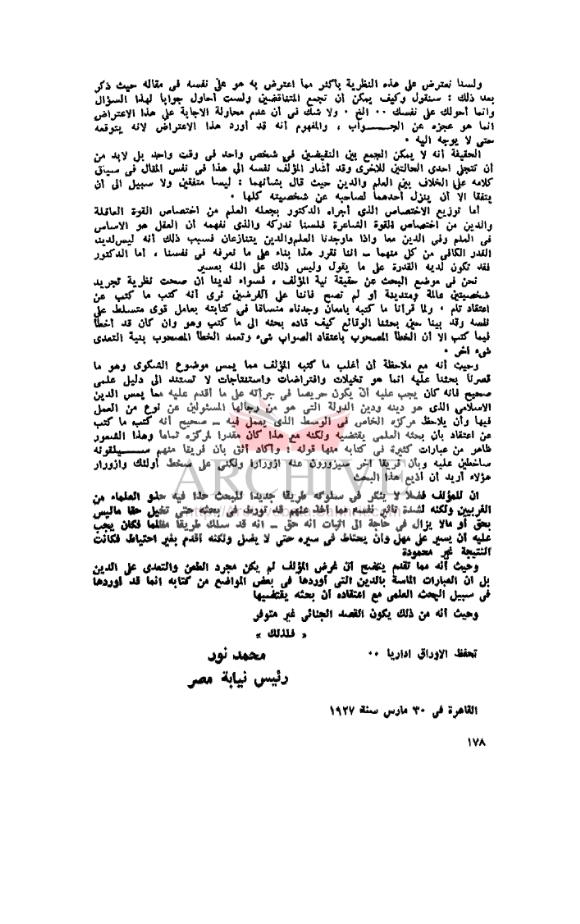 ولسنا نعترض على هذه النظرية بأكثر مما اعترض به هو على نفسه فى مقاله حيث ذكر
بعد ذلك : سنقول وكيف يمكن أن تجمع المتناقضين ولست أحاول جوابا لهذا السؤال
وانما أحولك على نفسك ٠٠ الخ ٠ ولا شك فى أن عدم محاولة الاجابة على هذا الاعتراض
انما هو عجزه عن الجـــــواب ، والمفهوم أنه قد أورد هذا الاعتراض لانه يتوقعه
حتى لا يوجه اليه ٠
الحقيقة أنه لا يمكن الجمع بين النقيضين فى شخص واحد فى وقت واحد بل لابد من
أن تتجلى احدى الحالتين للاخرى وقد أشار المؤلف نفسه الى هذا فى نفس المقال فى سياق
كلامه على الخلاف بين العلم والدين حيث قال بشأنهما : ليسا متفقين ولا سبيل الى أن
يتفقا الا أن ينزل أحدهما لصاحبه عن شخصيته كلها ٠
أما توزيع الاختصاص الذى أجراه الدكتور بجعله العلم من اختصاص القوة العاقلة
والدين من اختصاص القوة الشاعرة فلسنا ندركه والذى نفهمه أن العقل هو الاساس
فى العلم وفى الدين معا واذا ماوجدنا العلم والدين يتنازعان فسبب ذلك أنه ليس لدينا
القدر الكافى من كل منهما ــ اننا نقرر هذا بناء على ما نعرفه فى نفسنا ، أما الدكتور
فقد تكون لديه القدرة على ما يقول وليس ذلك على الله بعسير
نحن فى موضع البحث عن حقيقة نية المؤلف ، فسواء لدينا أن صحت نظرية تجريد
شخصيتين عالمة ومتدينة أو لم تصح فاننا على الفرضين نرى أنه كتب ما كتب عن
اعتقاد تام ٠ ولما قرأنا ما كتبه بامعان وجدناه منساقا فى كتابته بعامل قوى متسلط على
نفسه وقد بينا حين بحثنا الوقائع كيف قاده بحثه الى ما كتب وهو وان كان قد أخطأ
فيما كتب الا أن الخطأ المصحوب باعتقاد الصواب شىء وتعمد الخطأ المصحوب بنية التعدى
شىء آخر ٠
وحيث أنه مع ملاحظة أن أغلب ما كتبه المؤلف مما يمس موضوع الشكوى وهو ما
قصرنا بحثنا عليه انما هو تخيلات وافتراضات واستنتاجات لا تستند الى دليل علمى
صحيح فانه كان يجب عليه أن يكون حريصا فى جرأته على ما أقدم عليه مما يمس الدين
الاسلامى الذى هو دينه ودين الدولة التى هو من رجالها المسئولين عن نوع من العمل
فيها وأن يلاحظ مركزه الخاص فى الوسط الذى يعمل فيه ــ صحيح أنه كتب ما كتب
عن اعتقاد بأن بحثه العلمى يقتضيه ولكنه مع هذا كان مقدرا لمركزه تماما وهذا الشعور
ظاهر من عبارات كثيرة فى كتابه منها قوله : وأكاد أثق بأن فريقا منهم ســـيلقونه
ساخطين عليه وبأن فريقا آخر سيزورون عنه ازورارا ولكنى على سخط أولئك وازورار
هؤلاء أريد أن أذيع هذا البحث
ان للمؤلف فضلا لا ينكر فى سلوكه طريقا جديدا للبحث حذا فيه حذو العلماء من
الغربيين ولكنه لشدة تأثر نفسه مما أخذ عنهم قد تورط فى بحثه حتى تخيل حقا ماليس
بحق أو مالا يزال فى حاجة الى اثبات أنه حق ــ انه قد سلك طريقا مظلما فكان يجب
عليه أن يسير على مهل وأن يحتاط فى سيره حتى لا يضل ولكنه أقدم بغير احتياط فكانت
النتيجة غير محمودة
وحيث أنه مما تقدم يتضح أن غرض المؤلف لم يكن مجرد الطعن والتعدى على الدين
بل ان العبارات الماسة بالدين التى أوردها فى بعض المواضع من كتابه انما قد أوردها
فى سبيل البحث العلمى مع اعتقاده أن بحثه يقتضيها
وحيث أنه من ذلك يكون القصد الجنائى غير متوفر
« فلذلك »
تحفظ الاوراق اداريا ٠٠
محمد نور
رئيس نيابة مصر
القاهرة فى ٣٠ مارس سنة ١٩٢٧
ARCHIVE
١٧٨